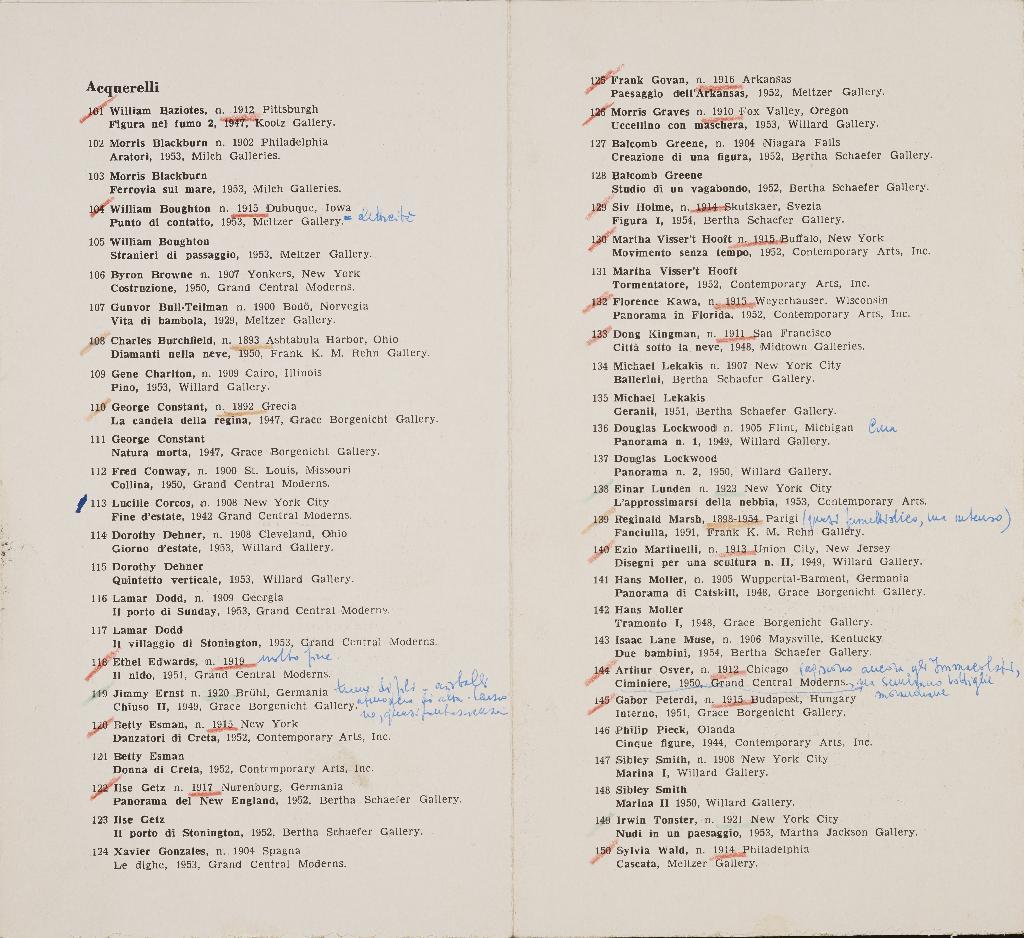 Acquerelli
101 William Baziotes, n. 1912 Pittsburgh
Figura nel fumo 2, 1947, Kootz Gallery.
102 Morris Blackburn n. 1902 Philadelphia
Aratori, 1953, Milch Galleries.
103 Morris Blackburn
Ferrovia sul mare, 1953, Milch Galleries.
104 William Boughton n. 1915 Dubuque, Iowa
Punto di contatto, 1953, Meltzer Gallery.
105 William Boughton
Stranieri di passaggio, 1953, Meltzer Gallery.
106 Byron Browne n. 1907 Yonkers, New York
Costruzione, 1950, Grand Central Moderns.
107 Gunvor Bull-Teilman n. 1900 Bodö, Norvegia
Vita di bambola, 1929, Meltzer Gallery.
108 Charles Burchfield, n. 1893 Ashtabula Harbor, Ohio
Diamanti nella neve, 1950, Frank K. M. Rehn Gallery.
109 Gene Charlton, n. 1909 Cairo, Illinois
Pino, 1953, Willard Gallery.
110 George Constant, n. 1892 Grecia
La candela della regina, 1947, Grace Borgenicht Gallery.
111 George Constant
Natura morta, 1947, Grace Borgenicht Gallery.
112 Fred Conway, n. 1900 St. Louis, Missouri
Collina, 1950, Grand Central Moderns.
113 Lucille Corcos, n. 1908 New York City
Fine d'estate, 1942 Grand Central Moderns.
114 Dorothy Dehner, n. 1908 Cleveland, Ohio
Giorno d'estate, 1953, Willard Gallery.
115 Dorothy Dehner
Quintetto verticale, 1953, Willard Gallery.
116 Lamar Dodd, n. 1909 Georgia
Il porto di Sunday, 1953, Grand Central Moderns.
117 Lamar Dodd
Il villaggio di Stonington, 1953, Grand Central Moderns.
118 Ethel Edwards, n. 1919 molto fine.
Il nido, 1951, Grand Central Moderns.
119 Jimmy Ernst n. 1920 Brühl, Germania
Chiuso II, 1949, Grace Borgenicht Gallery.
120 Betty Esman, n. 1915 New York
Danzatori di Creta, 1952, Contemporary Arts, Inc.
121 Betty Esman
Donna di Creta, 1952, Contemporary Arts, Inc.
122 Ilse Getz n. 1917 Nurenburg, Germania
Panorama del New England, 1952, Bertha Schaefer Gallery.
123 Ilse Getz
Il porto di Stonington, 1952, Bertha Schaefer Gallery.
124 Xavier Gonzales, n. 1904 Spagna
Le dighe, 1953, Grand Central Moderns.
125 Frank Govan, n. 1916 Arkansas
Paesaggio dell'Arkansas, 1952, Meltzer Gallery.
126 Morris Graves n. 1910 Fox Valley, Oregon
Uccellino con maschera, 1953, Willard Gallery.
127 Balcomb Greene, n. 1904 Niagara Falls
Creazione di una figura, 1952, Bertha Schaefer Gallery.
128 Balcomb Greene
Studio di un vagabondo, 1952, Bertha Schaefer Gallery.
129 Siv Holme, n. 1914 Skutskaer, Svezia
Figura I, 1954, Bertha Schaefer Gallery.
130 Martha Visser't Hooft n. 1915 Buffalo, New York
Movimento senza tempo, 1952, Contemporary Arts, Inc.
131 Martha Visser't Hooft
Tormentatore, 1952, Contemporary Arts, Inc.
132 Florence Kawa, n. 1915 Weyerhauser, Wisconsin
Panorama in Florida, 1952, Contemporary Arts, Inc.
133 Dong Kingman, n. 1911 San Francisco
Città sotto la neve, 1948, Midtown Galleries.
134 Michael Lekakis n. 1907 New York City
Ballerini, Bertha Schaefer Gallery.
135 Michael Lekakis
Geranii, 1951, Bertha Schaefer Gallery.
136 Douglas Lockwood n. 1905 Flint, Michigan
Panorama n. 1, 1949, Willard Gallery.
137 Douglas Lockwood
Panorama n. 2, 1950, Willard Gallery.
138 Einar Lunden n. 1923 New York City
L'approssimarsi della nebbia, 1953, Contemporary Arts.
139 Reginald Marsh, 1898-1954 Parigi (quasi fumettistico, ma intenso)
Fanciulla, 1951, Frank K. M. Rehn Gallery.
140 Ezio Martinelli, n. 1913 Union City, New Jersey
Disegni per una scultura n. II, 1949, Willard Gallery.
141 Hans Moller, n. 1905 Wuppertal-Barment, Germania
Panorama di Catskill, 1948, Grace Borgenicht Gallery.
142 Hans Moller
Tramonto I, 1948, Grace Borgenicht Gallery.
143 Isaac Lane Muse, n. 1906 Maysville, Kentucky
Due bambini, 1954, Bertha Schaefer Gallery.
144 Arthur Osver, n. 1912 Chicago
Ciminiere, 1950, Grand Central Moderns.
145 Gabor Peterdi, n. 1915 Budapest, Hungary
Interno, 1951, Grace Borgenicht Gallery.
146 Philip Pieck, Olanda
Cinque figure, 1944, Contemporary Arts, Inc.
147 Sibley Smith, n. 1908 New York City
Marina I, Willard Gallery.
148 Sibley Smith
Marina II 1950, Willard Gallery.
149 Irwin Tonster, n. 1921 New York City
Nudi in un paesaggio, 1953, Martha Jackson Gallery.
150 Sylvia Wald, n. 1914 Philadelphia
Cascata, Meltzer Gallery.